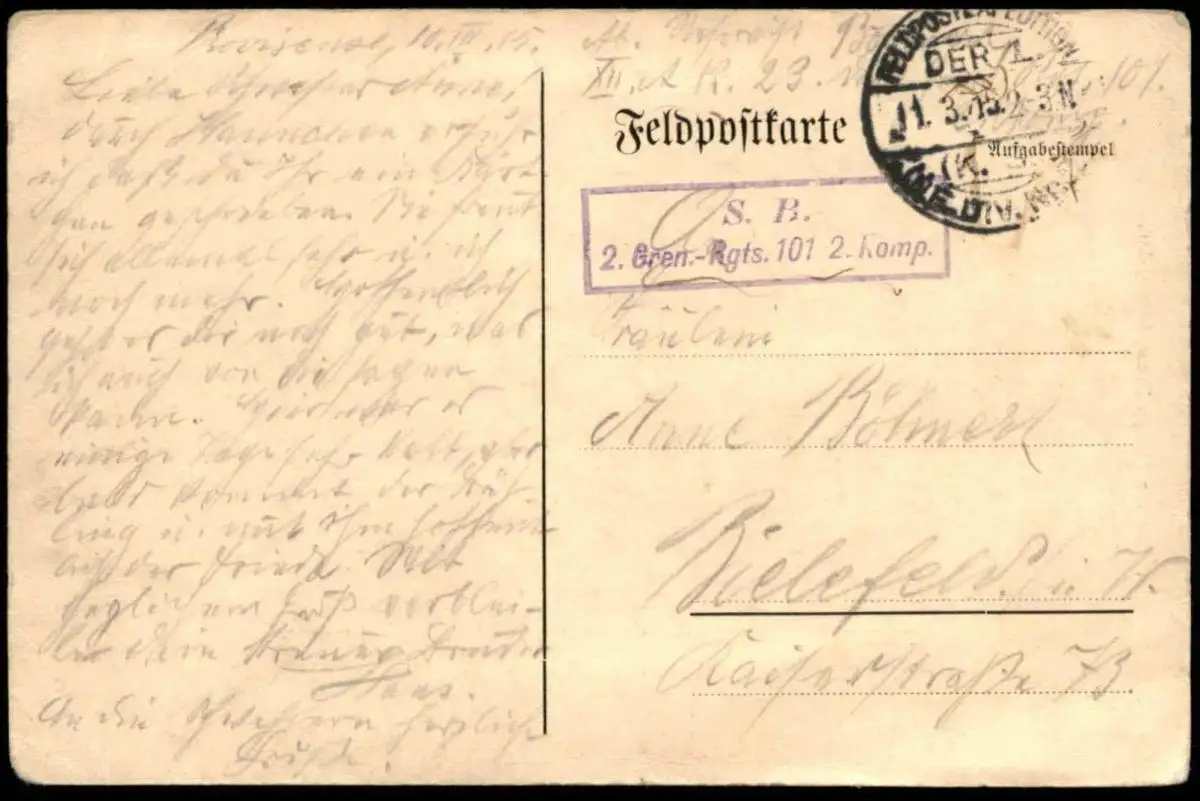 10.III.15.
Liebe Schwester Anne,
durch Hannchen erfuhr
ich daß du Ihr ein Kärt-
chen geschrieben. Sie freut
sich allemal sehr u. ich
noch mehr. Hoffentlich
geht es dir noch gut, was
ich auch von mir sagen
kann. Hier war es
einige Tage sehr kalt, aber
bald kommt der Früh-
ling u. mit ihm hoffent-
lich der Friede. Mit
herzlichem Gruß verblei-
be dein treuer Bruder
Hans.
An die Schwestern herzliche
Grüße.
Ab.
XII. A K. 23. 101.
Feldpostkarte
FELDPOSTEXPEDITION
DER 1.
11. 3. 15. 2-3N
(K.
INF. DIV. No.
Aufgabestempel
S. B.
2. Gren.-Rgts. 101 2. Komp.
Fräulein
Anne Böhmert
Bielefeld. i. W.
Kaiserstraße 73.